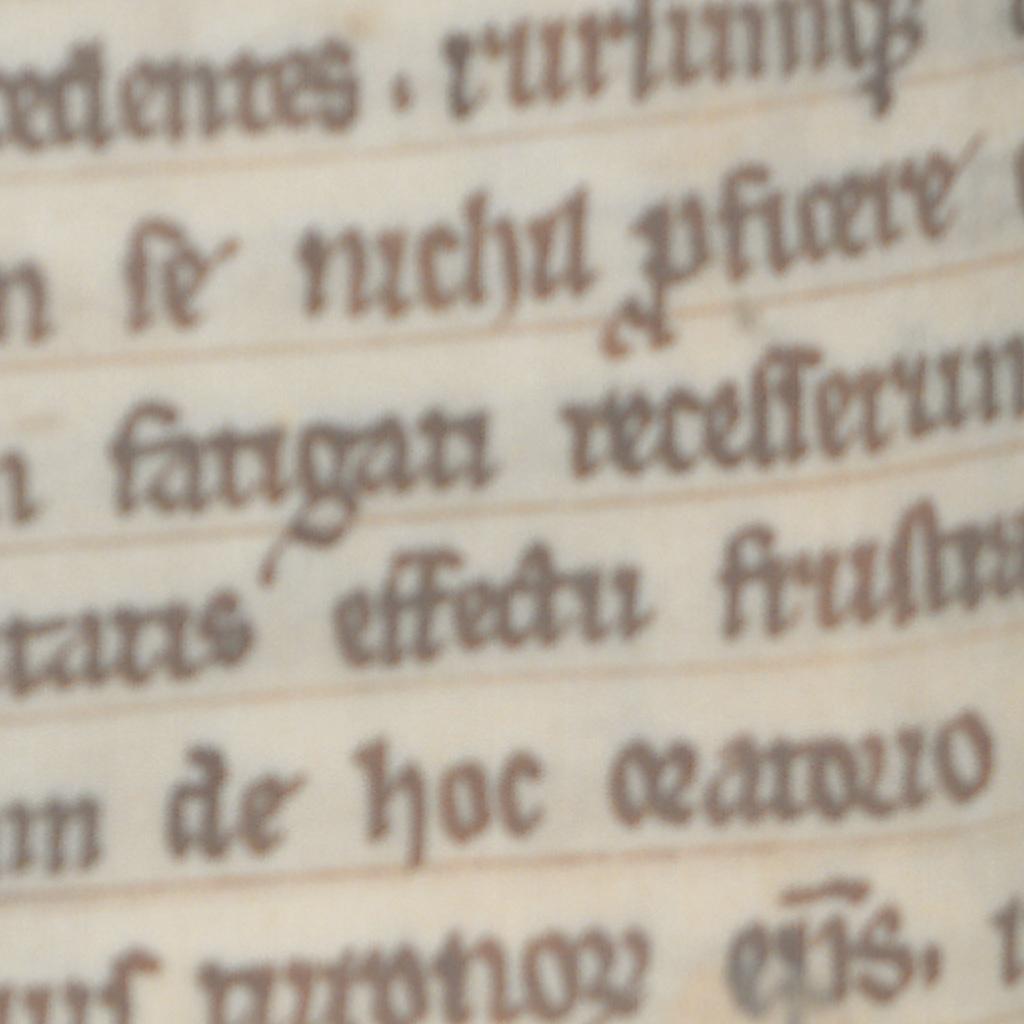 cedentes . rursumq;
se nichil ꝓficere
fatigati recesserun
tatis effectu frustra
m de hoc oratorio
epīs.